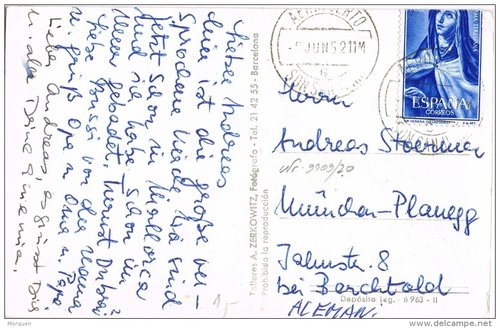 Lieber Andreas
hier ist die große ver-
sprochene Karte. Wir sind
jetzt schon in Mallorca
und ich habe schon im
Meer gebadet.
liebe Bussi von der Mama
u. grüß Opa u. Oma u. Papa.
Liebe Andreas, es grüßt Dich
u. alle Deine
Talleres A. ZERKOWITZ, Fotógrafo - Tel. 21 42 55 - Barcelona
Prohibida la reproducción
1,-
AEROPUERTO
JUN 62 11M
ESPAÑA
CORREOS
Herrn
Andreas Stoermer
Nr. 9009/20
München-Planegg
Jahnstr. 8
bei Berchtold
ALEMAN.
Depósito Leg. - B 963 - II
Morquen
delcampe.net